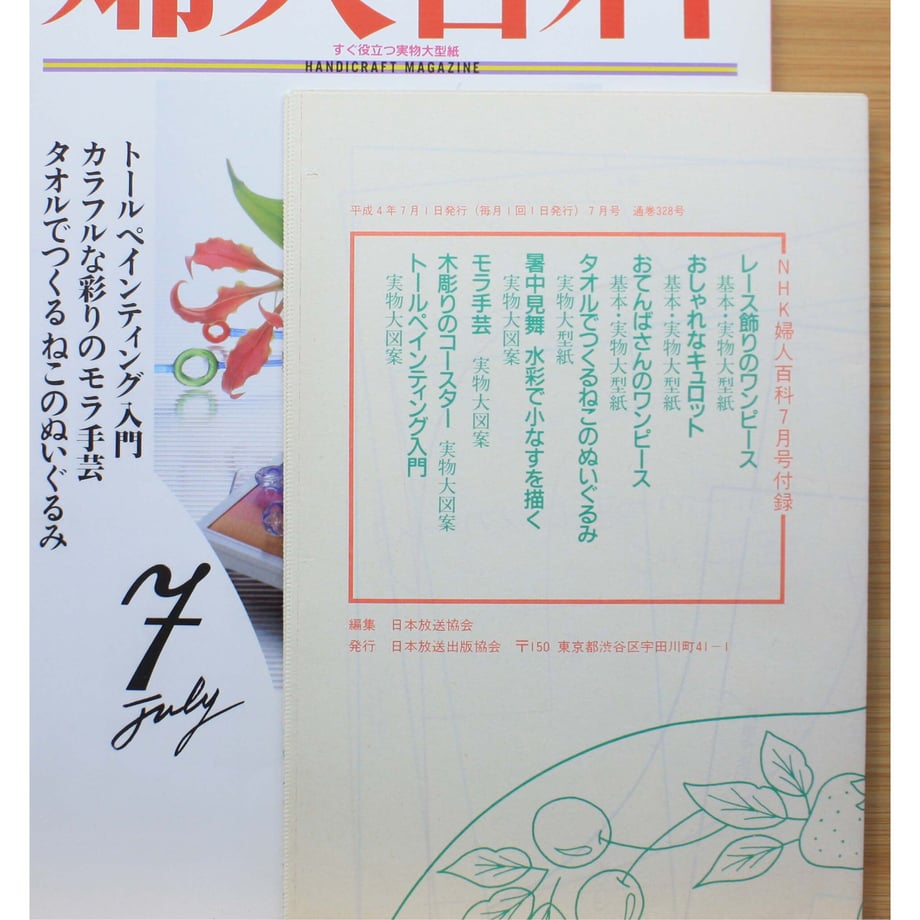 婦人百科
すぐ役立つ実物大型紙
HANDICRAFT MAGAZINE
トールペインティング入門
カラフルな彩りのモラ手芸
タオルでつくるねこのぬいぐるみ
7
July
平成4年7月1日発行(毎月1回1日発行)7月号 通巻328号
NHK婦人百科7月号付録
レース飾りのワンピース
基本・実物大型紙
おしゃれなキュロット
基本・実物大型紙
おてんばさんのワンピース
基本・実物大型紙
タオルでつくるねこのぬいぐるみ
実物大型紙
暑中見舞 水彩で小なすを描く
実物大図案
モラ手芸 実物大図案
木彫りのコースター 実物大図案
トールペインティング入門
実物大図案
編集 日本放送協会
発行 日本放送出版協会 〒150 東京都渋谷区宇田川町41-1